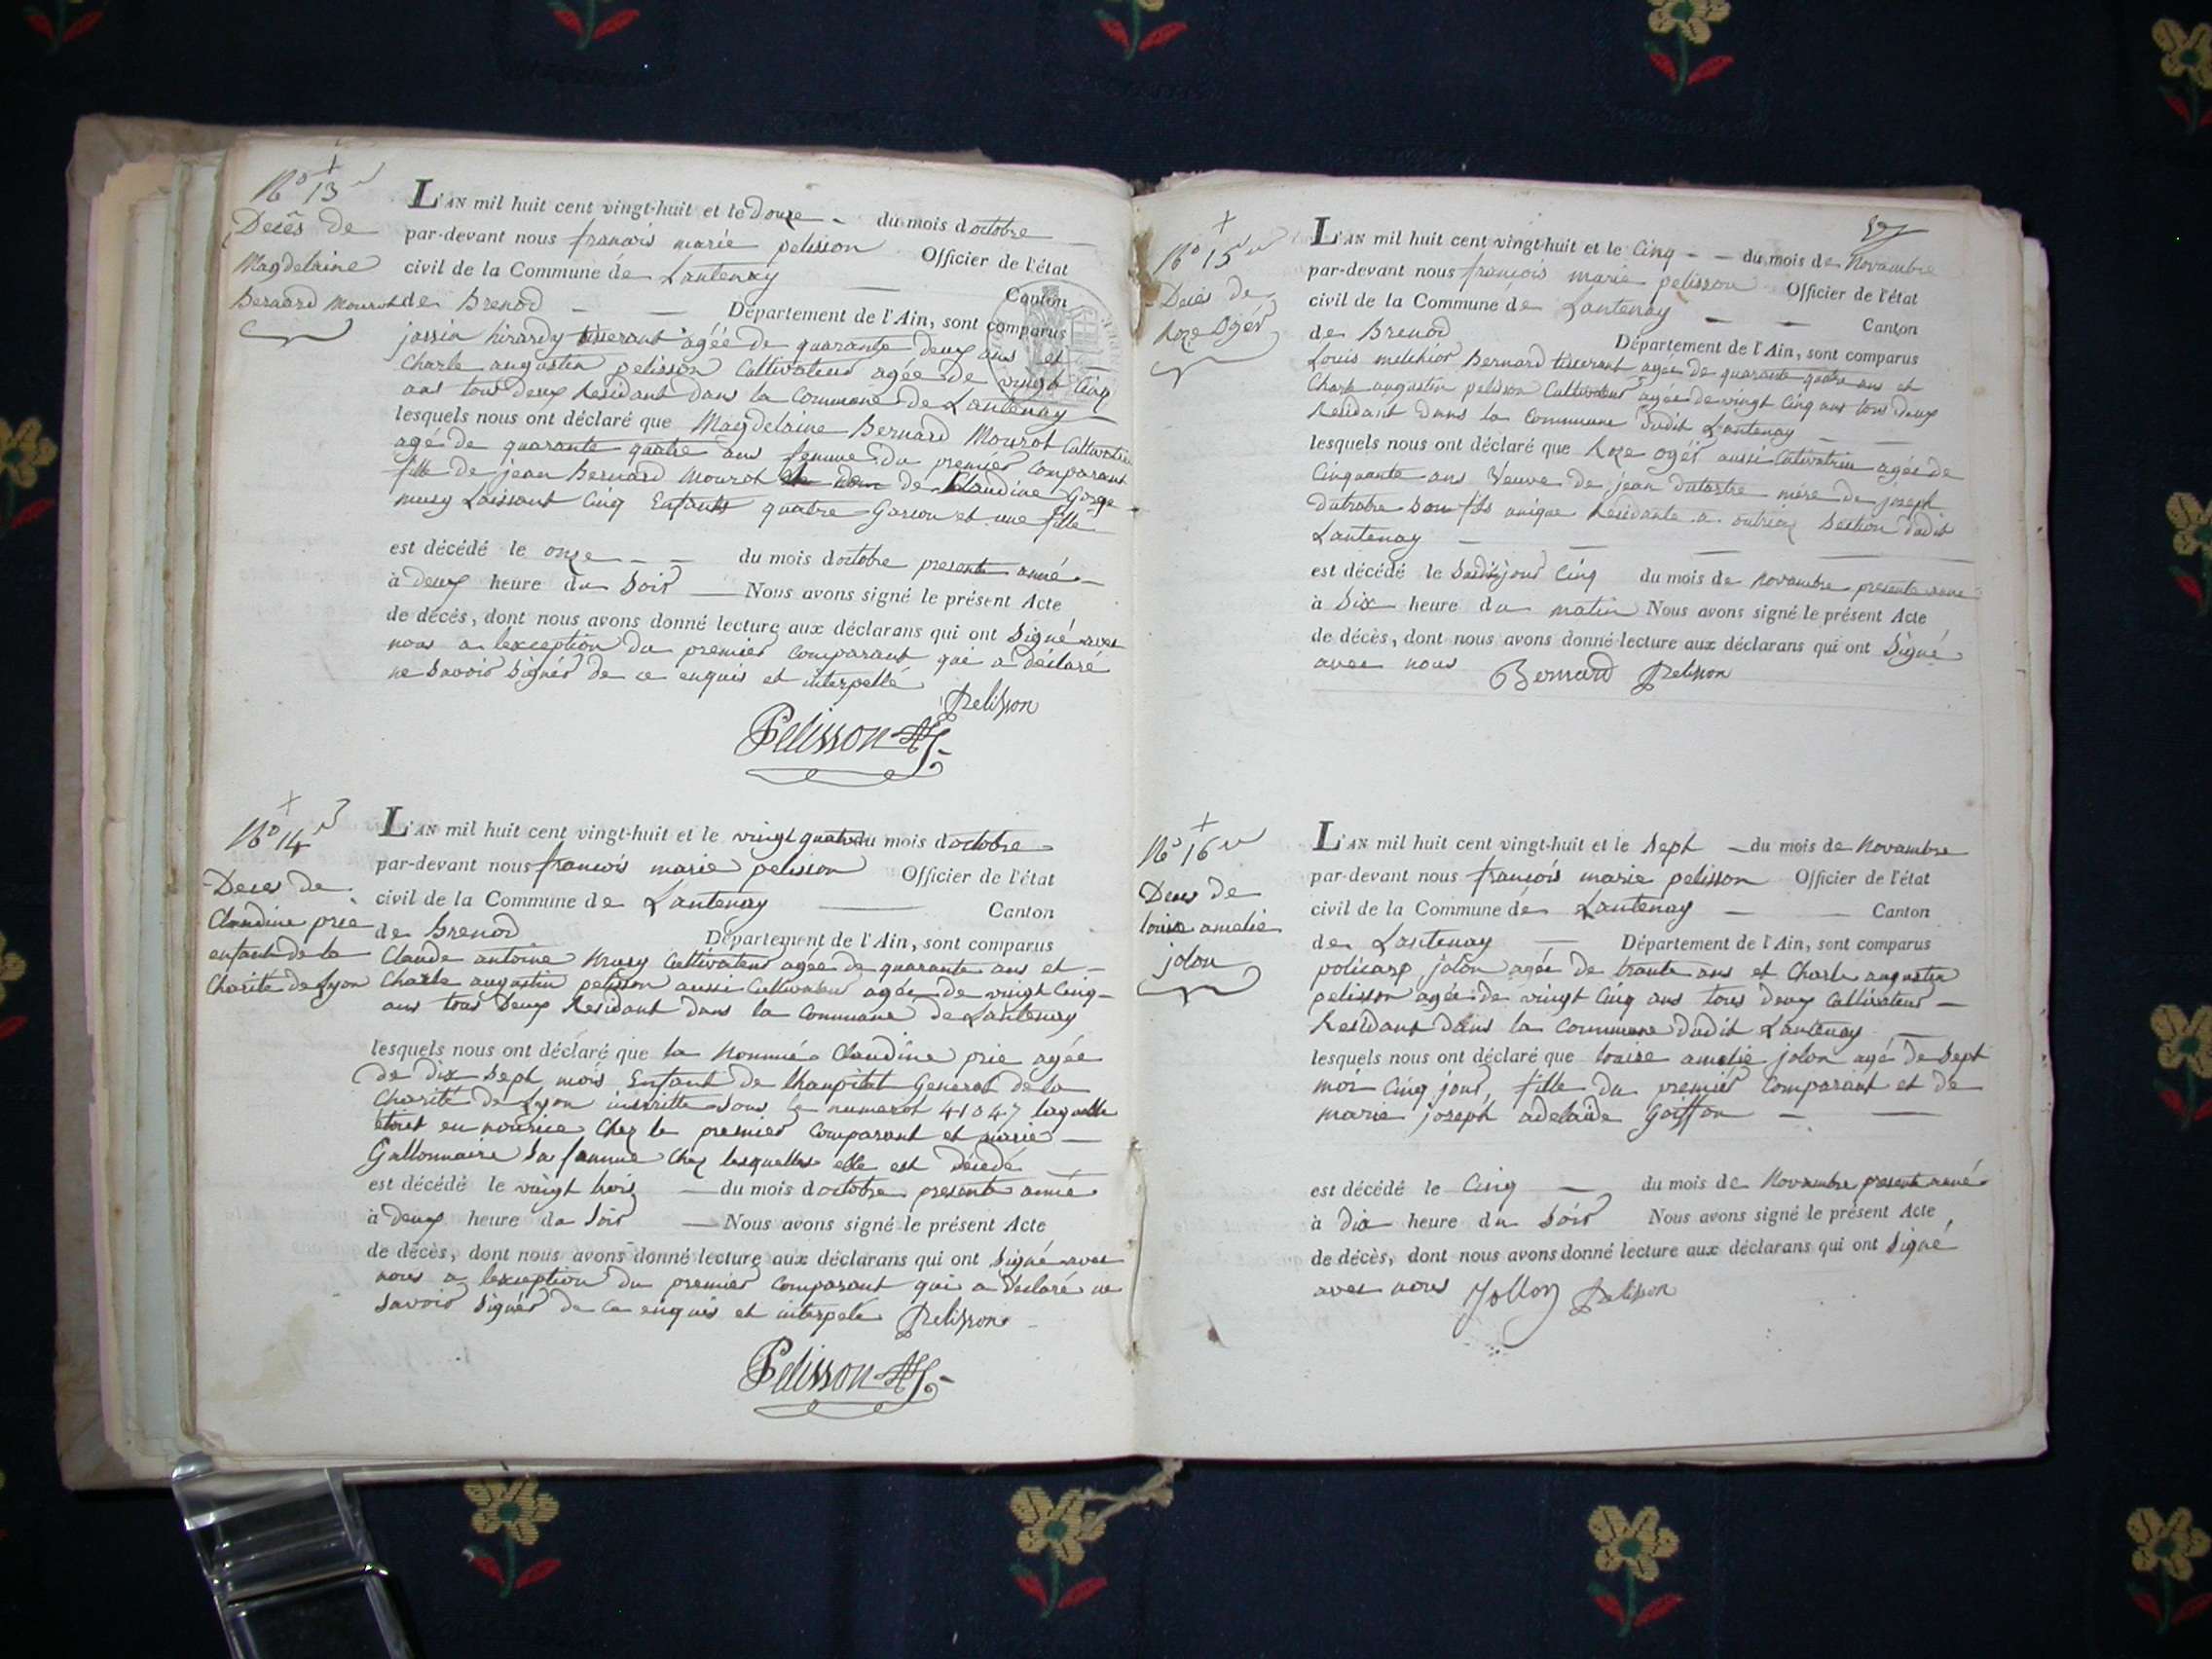 N° 13
Decês de
Magdelaine
Bernard Mourot
L'AN mil huit cent vingt-huit et le douze du mois doctobre
par-devant nous francois marie pelisson Officier de l'état
civil de la Commune de Lantenay Canton
de Brenod Département de l'Ain, sont comparus
jossin hirardy tisserant agéé de quarante deux ans et
Charle augustin pelisson Cultivateur agée de vingt Cinq
ans tous deux Residant dans la Commune de Lantenay
lesquels nous ont déclaré que Magdelaine Bernard Mourot Cultivatrice
agé de quarante quatre ans femme du premier Comparant
fille de jean Bernard Mourot de Claudine Gorge
musy Laissant Cinq Enfants quatre Garson et une fille
est décédé le onze du mois doctobre presente anné
à deux heure du Soir Nous avons signé le présent Acte
de décès, dont nous avons donné lecture aux déclarans qui ont Signé avec
nous a lexception du premier Comparant qui a déclaré
ne Savoir Signér de ce enquis et interpellé
Pelisson
Pelisson
N° 14
Deces de
Claudine prie
enfant de la
Charité de Lyon
L'AN mil huit cent vingt-huit et le vingt quatre du mois doctobre
par-devant nous francois marie pelisson Officier de l'état
civil de la Commune de Lantenay Canton
de Brenod Département de l'Ain, sont comparus
Claude antoine Musy Cultivateur agée de quarante ans et
Charle augustin pelisson aussi Cultivateur agée de vingt Cinq
ans tous Deux Residant dans la Commune de Lantenay
lesquels nous ont déclaré que la Nommée Claudine prie agée
de dix Sept mois Enfant de lhaupital General de la
Charité de Lyon inscritte sous le numerot 41047 laquelle
étoit en nourice Chez le premier Comparant et marie
Gallonnaire Sa famme Chez lesquelles elle est décedé
est décédé le vingt trois du mois doctobre presente anné
à deux heure du Soir Nous avons signé le présent Acte
de décès, dont nous avons donné lecture aux déclarans qui ont Signé avec
nous a lexception du premier Comparant qui a déclaré ne
Savoir Signér de ce enquis et interpelé Pelisson
Pelisson
N° 15
Decès de
Roze Ogér
L'AN mil huit cent vingt-huit et le Cinq du mois de Novambre
par-devant nous françois marie pelisson Officier de l'état
civil de la Commune de Lantenay Canton
de Brenod Département de l'Ain, sont comparus
Louis melchior Bernard tisserant agée de quarante quatre ans et
Charle augustin pelisson Cultivateur agée de vingt Cinq ans tous deux
Residant dans la Commune dudit Lantenay
lesquels nous ont déclaré que Roze ogér aussi Cultivatrice agée de
Cinquante ans Veuve de jean dutartre mère de joseph
Dutratre Son fils unique Residante a outriaz Section dudit
Lantenay
est décédé le Susdit jour Cinq du mois de Novambre presente anné
à Dix heure du matin Nous avons signé le présent Acte
de décès, dont nous avons donné lecture aux déclarans qui ont Signé
avec nous Bernard Pelisson
N° 16
Deces de
louise amelie
jolon
L'AN mil huit cent vingt-huit et le Sept du mois de Novambre
par-devant nous françois marie pelisson Officier de l'état
civil de la Commune de Lantenay Canton
de Lantenay Département de l'Ain, sont comparus
policarp jolon agée de trante ans et Charle augustin
pelisson agée de vingt Cinq ans tous deux Cultivateur
Residant dans la Commune dudit Lantenay
lesquels nous ont déclaré que louise amelie jolon agé de Sept
moi Cinq jour, fille du premier Comparant et de
marie joseph adelaide Goiffon
est décédé le Cinq du mois de Novambre presente anné
à dix heure du Soir Nous avons signé le présent Acte
de décès, dont nous avons donné lecture aux déclarans qui ont Signé
avec nous Jollon Pelisson